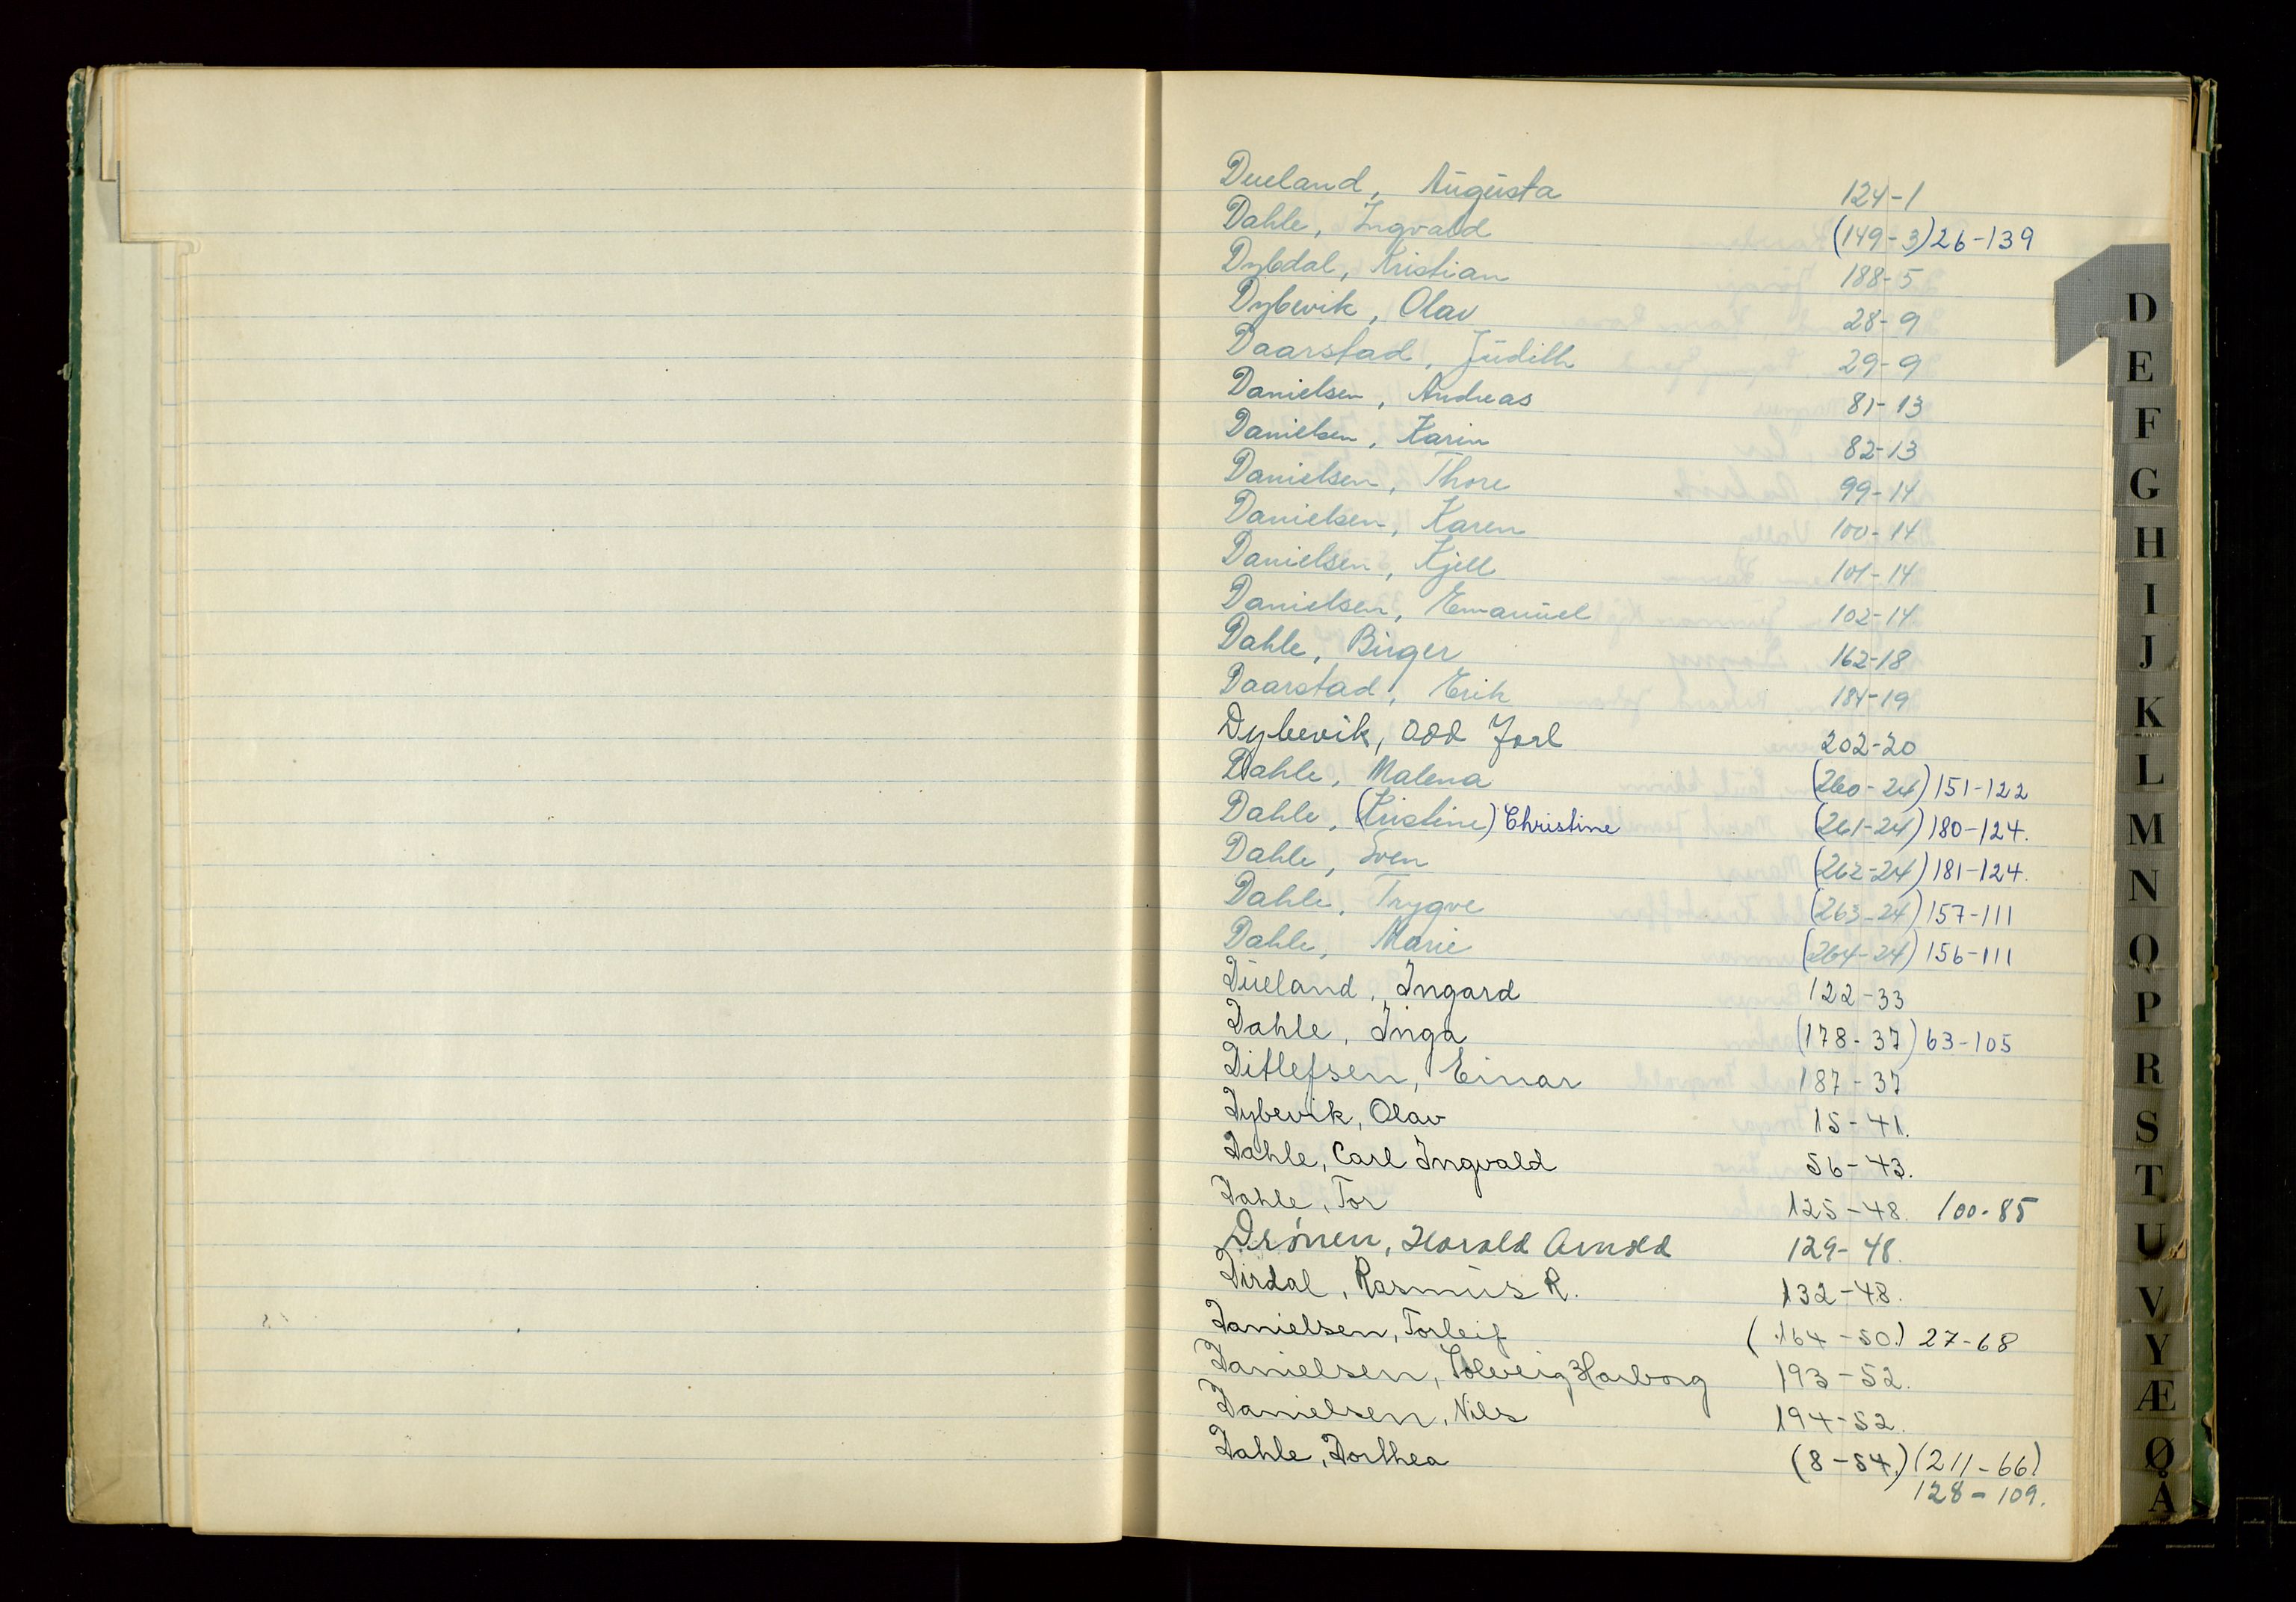 Dueland, Augusta 124-1
Dahle, Ingvald (149-3) 26-139
Dybdal, Kristian 188-5
Dybevik, Olav 28-9
Daarstad, Judith 29-9
Danielsen, Andreas 81-13
Danielsen, Karin 82-13
Danielsen, Thore 99-14
Danielsen, Karen 100-14
Danielsen, Kjell 101-14
Danielsen, Emanuel 102-14
Dahle, Birger 162-18
Daarstad, Erik 184-19
Dybevik, Odd Jarl 202-20
Dahle, Malena (260-24) 151-122
Dahle, (Kristine) Christine (261-24) 180-124.
Dahle, Sven (262-24) 181-124.
Dahle, Trygve (263-24) 157-111
Dahle, Marie (264-24) 156-111
Dueland, Ingard 122-33
Dahle, Inga (178-37) 63-105
Ditlefsen, Einar 187-37
Dybevik, Olav 15-41.
Dahle, Carl Ingvald 56-43.
Dahle, Tor 125-48. 100-85
Drönen, Harald Arnold 129-48.
Dirdal, Rasmus R. 132-48.
Danielsen, Torleif (164-50.) 27-68
Danielsen, Solveig Harborg 193-52.
Danielsen, Nils 194-52.
Dahle, Dorthea (8-54.) (211-66)
128-109.
D
E
F
G
H
I
J
K
L
M
N
O
P
R
S
T
U
V
Y
Æ
Ø
Å